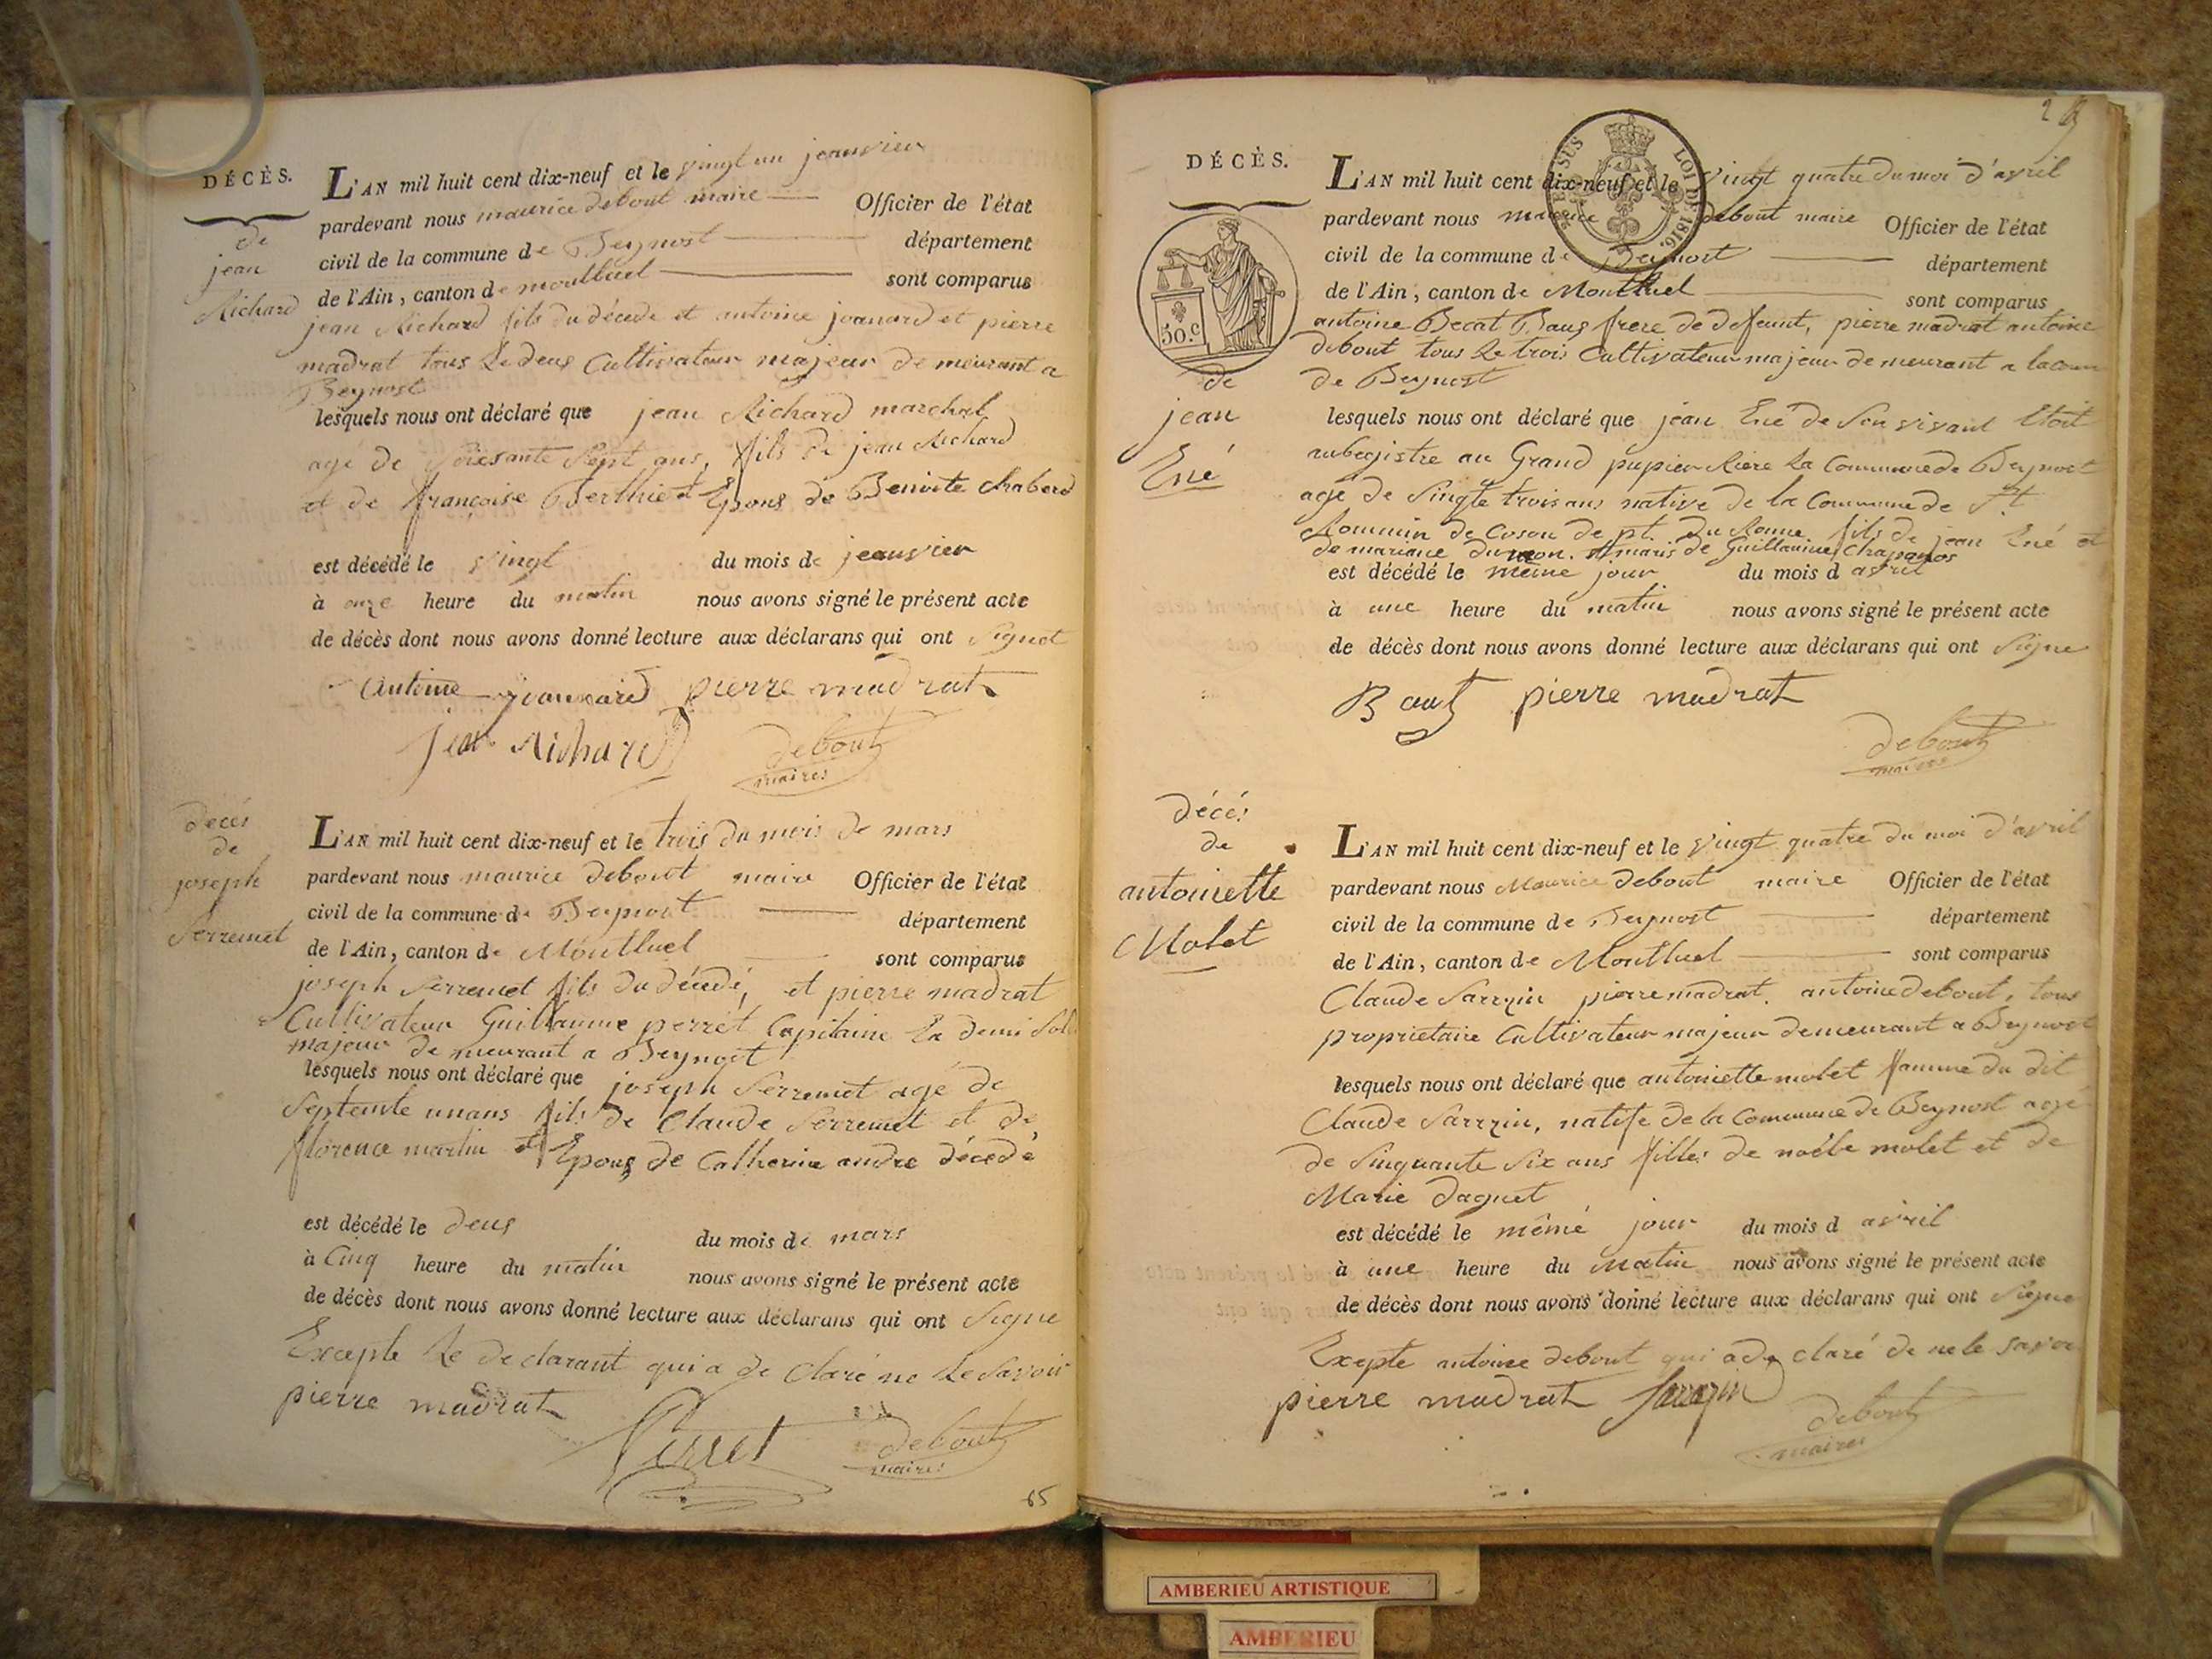 DÉCÈS.
de
jean
Richard
L'AN mil huit cent dix-neuf et le vingt un jeanvier
pardevant nous maurice debout maire Officier de l'état
civil de la commune de Beynost département
de l'Ain, canton de montluel sont comparus
jean Richard fils du décede et antoine joanard et pierre
madrat tous Le deus Cultivateur majeur de meurant a
Beynost
lesquels nous ont déclaré que jean Richard marchal
agé de soiesante sept ans, fils de jean Richard
et de françoise Berthiet Epous de Benoite chaberd
est décédé le vingt du mois de jeanvier
à onze heure du matin nous avons signé le présent acte
de décès dont nous avons donné lecture aux déclarans qui ont signet
Antoine joannard pierre madrat
jean Richard debout
maires
décés
de
joseph
Serremet
L'AN mil huit cent dix-neuf et le trois du mois de mars
pardevant nous maurice debout maire Officier de l'état
civil de la commune de Beynost département
de l'Ain, canton de Montluel sont comparus
joseph Serremet fils du décedé, et pierre madrat
Cultivateur Guillaume perret Capitaine En demi Sol
majeur de meurant a Beynost
lesquels nous ont déclaré que joseph Serremet agé de
septente unans fils de Claude Serremet et de
florence martin et Epous de Catherine andre décedé
est décédé le deus du mois de mars
à Cinq heure du matin nous avons signé le présent acte
de décès dont nous avons donné lecture aux déclarans qui ont Signe
Excepte Le declarant qui a de Claré ne Le Savoir
pierre madrat Perret debout
maires
65
2
DÉCÈS.
50.c
LOI DE 1816.
de
jean
Ené
L'AN mil huit cent dix-neuf et le vingt quatre du moi d'avril
pardevant nous maurice debout maire Officier de l'état
civil de la commune de Beynost département
de l'Ain, canton de Montluel sont comparus
antoine Becat Baus frere de defeunt, pierre madrat antoine
debout tous Le trois Cultivateur majeur de meurant a lacom
de Beynost
lesquels nous ont déclaré que jean Ené de Son vivant Etoit
aubegistre au Grand pupier Riere La Commune de Beynost
agé de Singte trois ans native de la Commune de St
Rommin de Coson de pt. du Ronne fils de jean Ené et
de mariane dumon. et maris de Guillaumine Chapanos
est décédé le même jour du mois d avril
à une heure du matin nous avons signé le présent acte
de décès dont nous avons donné lecture aux déclarans qui ont Signe
Baus pierre madrat
debout
maires
décés
de
antoinette
Molet
L'AN mil huit cent dix-neuf et le vingt quatre du moi d'avril
pardevant nous Maurice debout maire Officier de l'état
civil de la commune de Beynost département
de l'Ain, canton de Montluel sont comparus
Claude Sarrzin pierre madrat. antoine debout, tous
proprietaire Cultivateur majeur demeurant a Beynost
lesquels nous ont déclaré que antoinette molet famme du dit
Claude Sarrzin, natife de la Commune de Beynost agé
de Sinquante Six ans filles de noêle molet et de
Marie daguet
est décédé le même jour du mois d avril
à une heure du Matin nous avons signé le présent acte
de décès dont nous avons donné lecture aux déclarans qui ont Signe
Exepte antoine debout qui a de claré de ne le savoir
pierre madrat Sarrazin debout
maires
AMBERIEU ARTISTIQUE
AMBERIEU